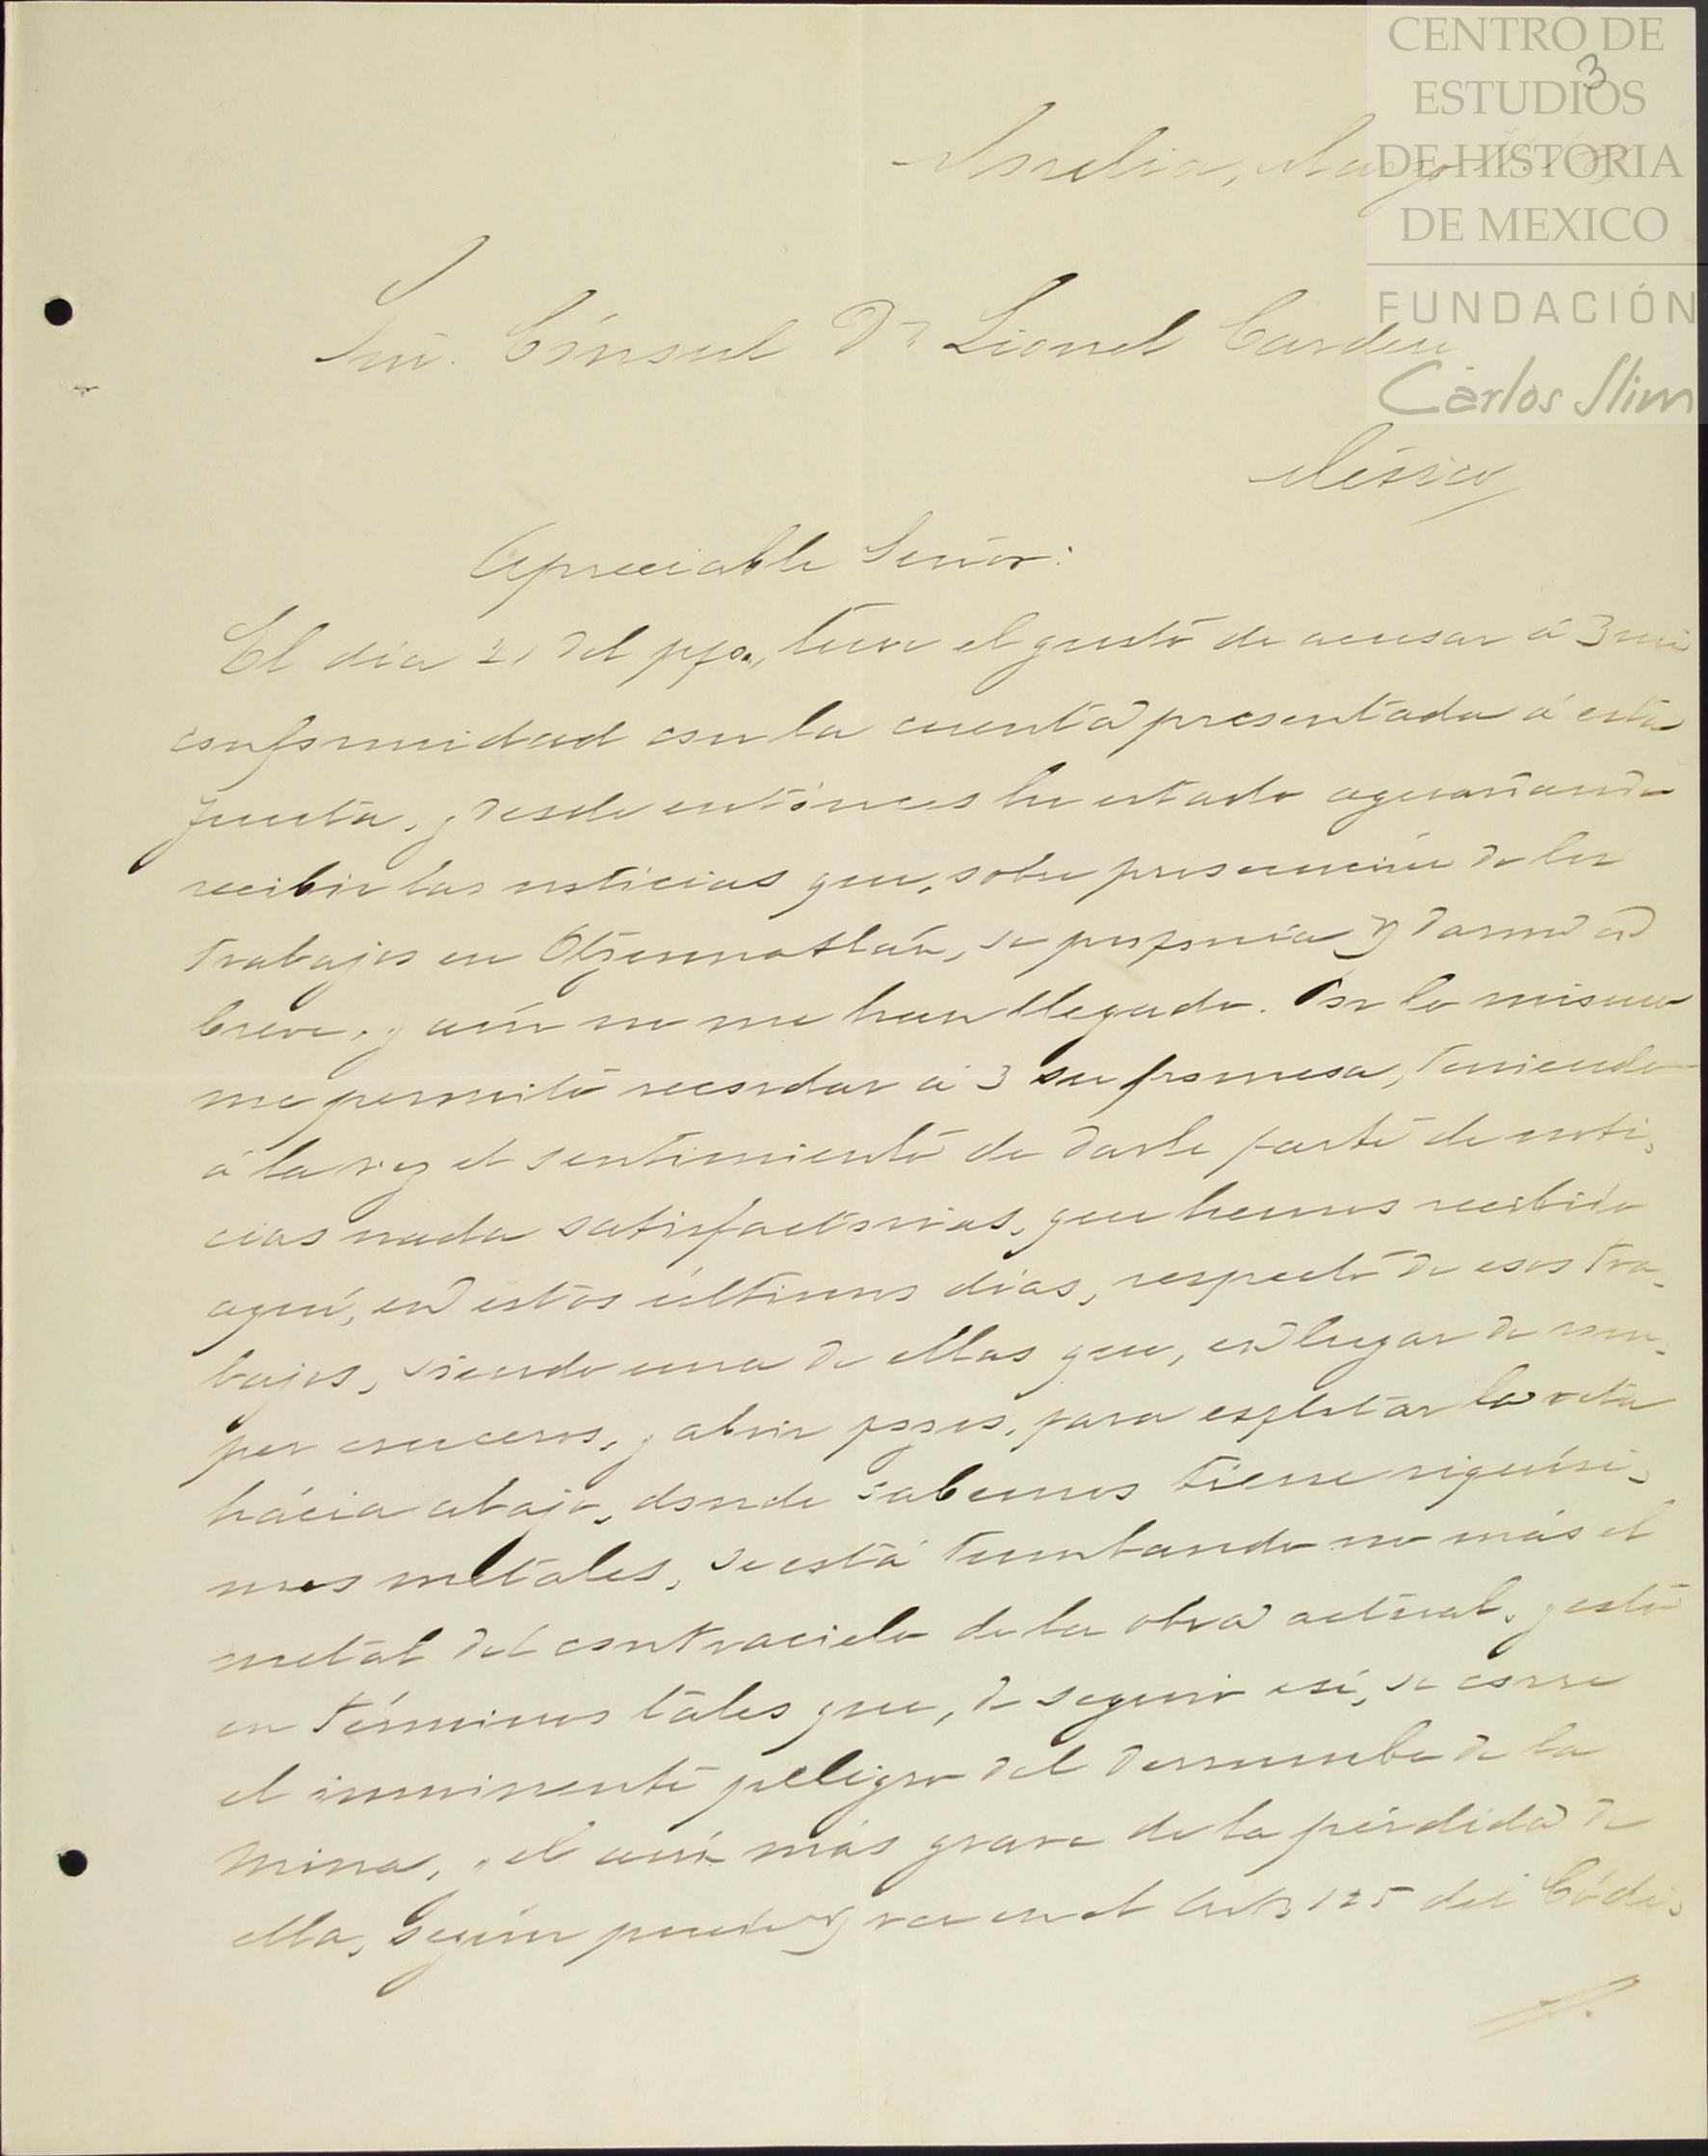 CENTRO DE
ESTUDIOS
DE HISTORIA
DE MEXICO
FUNDACIÓN
Carlos Slim
3
Morelia, Marzo
Sr. Cónsul Dn Lionel Carden
México
Apreciable Señor:
El dia 21 del ppo., tuve el gusto de acusar á V mi
conformidad con la cuenta presentada á esta
Junta, y desde entónces he estado aguardando
recibir las noticias que, sobre prosecucion de los
trabajos en Otzumatlán, se proponia V darme en
breve, y aún no me han llegado. Por lo mismo
me permito recordar á V su promesa, teniendo
á la vez el sentimiento de darle parte de noti-
cias nada satisfactorias, que hemos recibido
aquí, en estos últimos dias, respecto de esos tra-
bajos, siendo una de ellas que, en lugar de rom-
per cruceros, y abrir pozos, para esplotar la veta
hácia abajo, donde sabemos tiene riquísi-
mos metales, se está tumbando no más el
metal del contracielo de la obra actual, y esto
en términos tales que, de seguir así, se corre
el inminente peligro del derrumbe de la
mina, y el aún más grave de la pérdida de
ella, según puede V ver en el Arto 125 del Códi-